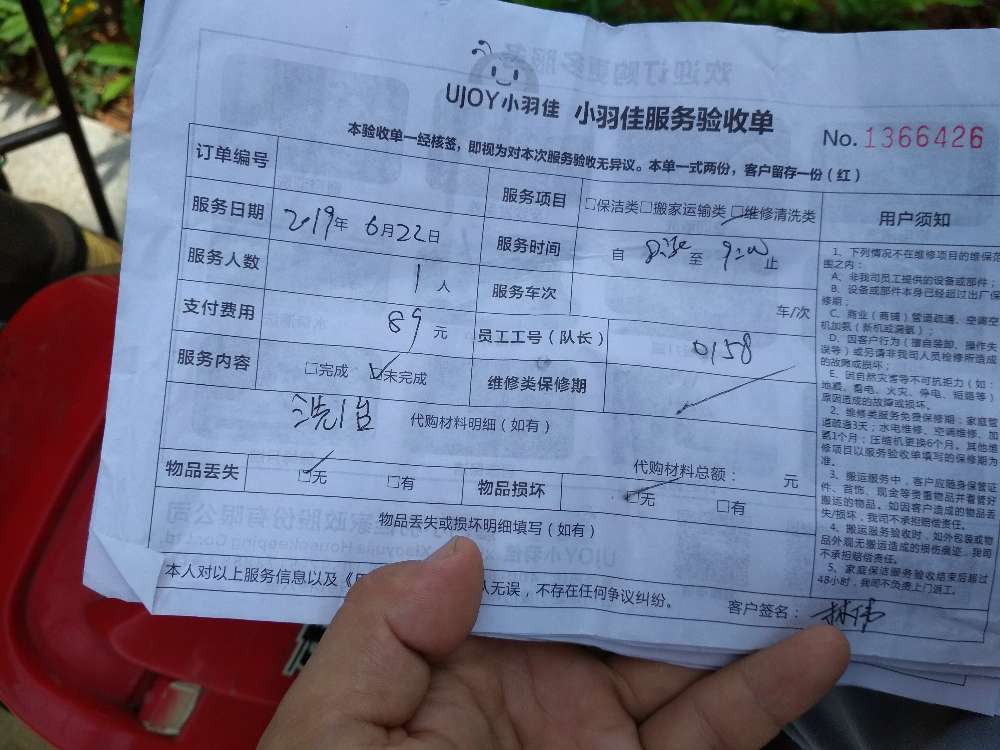 UJOY小羽佳 小羽佳服务验收单
No. 1366426
本验收单一经核签，即视为对本次服务验收无异议。本单一式两份，客户留存一份（红）
订单编号
服务项目 □保洁类□搬家运输类□维修清洗类
服务日期 2019年 6月22日
服务时间 自 至 止
服务人数 1 人
服务车次 车/次
支付费用 89 元
员工工号（队长） 0158
服务内容 □完成 □未完成
维修类保修期
代购材料明细（如有）
代购材料总额： 元
物品丢失 □无 □有
物品损坏 □无 □有
物品丢失或损坏明细填写（如有）
本人对以上服务信息以及《
认无误，不存在任何争议纠纷。
客户签名： 林伟
用户须知
1、下列情况不在维修项目的维保范
围之内：
A、非我司员工提供的设备或部件；
B、设备或部件本身已经超过出厂保
修期；
C、商业（商铺）管道疏通、空调空
机加氨（新机或漏氨）；
D、因客户行为（擅自装卸、操作失
误等）或另请非我司人员检修所造成
的故障或损坏；
E、因自然灾害等不可抗拒力（如：
地震、雷电、火灾、停电、短路等）
原因造成的故障或损坏。
2、维修类服务免费保修期：家庭管
道疏通3天；水电维修、空调维修、加
氨1个月；压缩机更换6个月。其他维
修项目以服务验收单填写的保修期为
准。
3、搬运服务中，客户应随身保管证
件、首饰、现金等贵重物品并看管好
搬运的物品。如因客户造成的物品丢
失/损坏，我司不承担赔偿责任。
4、搬运服务验收时，如外包装或物
品外观无搬运造成的损伤痕迹，我司
不承担赔偿责任。
5、家庭保洁服务验收结束后超过
48小时，我司不负责上门返工。